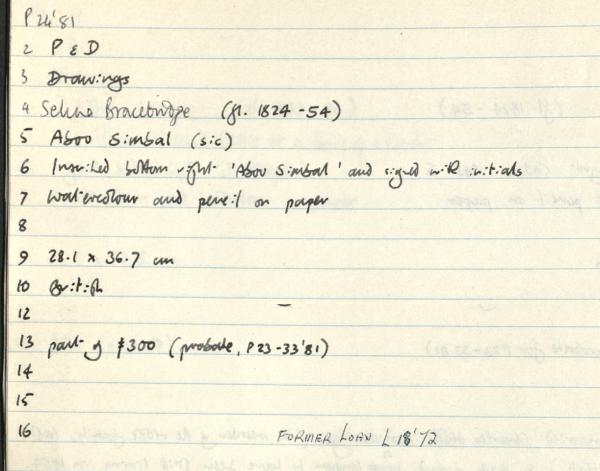 P24'81
2 P & D
3 Drawings
4 Selina Bracebridge (fl. 1824-54)
5 Aboo Simbal (sic)
6 Inscribed bottom right 'Aboo Simbal' and signed with initials
7 Watercolour and pencil on paper
8
9 28.1 x 36.7 cm
10 British
12 –
13 part of £300 (probate, P23-33'81)
14
15
16 FORMER LOAN L 18'72